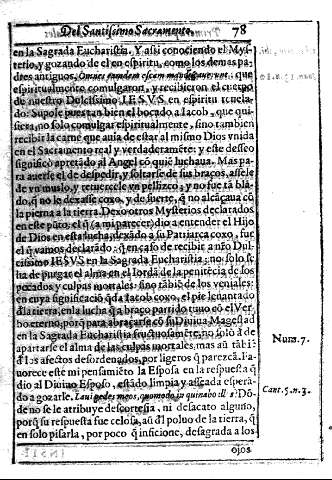 Del Santissimo Sacramento. 78
en la Sagrada Eucharistia. Y assi conociendo el Mys-
terio, y gozando de el en espiritu, como los demas pa-
dres antiguos, Omnes eandem escam manducaverunt, que
espiritualmente comulgaron, y recibieron el cuerpo
de nuestro Dulcissimo IESVS en espiritu
do: Supose puestan bien el bocado a Iacob, que qui-
siera, no solo comulgar espiritualmente, sino tambien
recibir la carne que auia de estar al mismo Dios vnida
en el Sacramento real y verdaderamẽte: y este desseo
significò apretado al Angel cõ quiẽ luchaua. Mas pa-
ra auerse el de despedir, y soltarse de sus braços, assele
de vn muslo, y retuercele vn pellizco, y no fue tã blã-
do, q̃ no le dexasse coxo, y de suerte, q̃ no alcãçaua cõ
la pierna a la tierra. Dexo otros Mysterios declarados
en este pũto, el q̃ (a mi parecer) dio a entender el Hijo
de Dios en esta lucha, dexãdo a su Patriarca coxo, fue
el q̃ vamos declarãdo: q̃ en caso de recibir a nr̃o Dul-
cissimo IESVS en la Sagrada Eucharistia: no solo se
ha de purgar el alma en el Iordã de la penitẽcia de los
pecados y culpas mortales: sino tãbiẽ de los veniales:
en cuya significaciõ q̃da Iacob coxo, el pie leuantado
d̃ la tierra, en la lucha q̃ a braço partido tuuo cõ el Ver-
bo eterno, porq̃ para abraçarse cõ su Diuina Magestad
en la Sagrada Eucharistia fructuosamẽte, no solo à de
apartarse el alma de las culpas mortales, mas aũ tãbiẽ
d̃ los afectos desordenados, por ligeros q̃ parezcã. Fa-
uorece este mi pensamiẽto la Esposa en la respuesta q̃
dio al Diuino Esposo, estãdo limpia y asseada espera-
do a gozarle. Laui pedes meos, quomodo inquinabo illos? Dõ-
de no se le atribuye descortesia, ni desacato alguno,
porq̃ su respuesta fue celosa, aũ d̃l poluo de la tierra, q̃
en solo pisarla, por poco q̃ inficione, desagrada a los
ojos
Num. 7.
Cant. 5. n. 3.